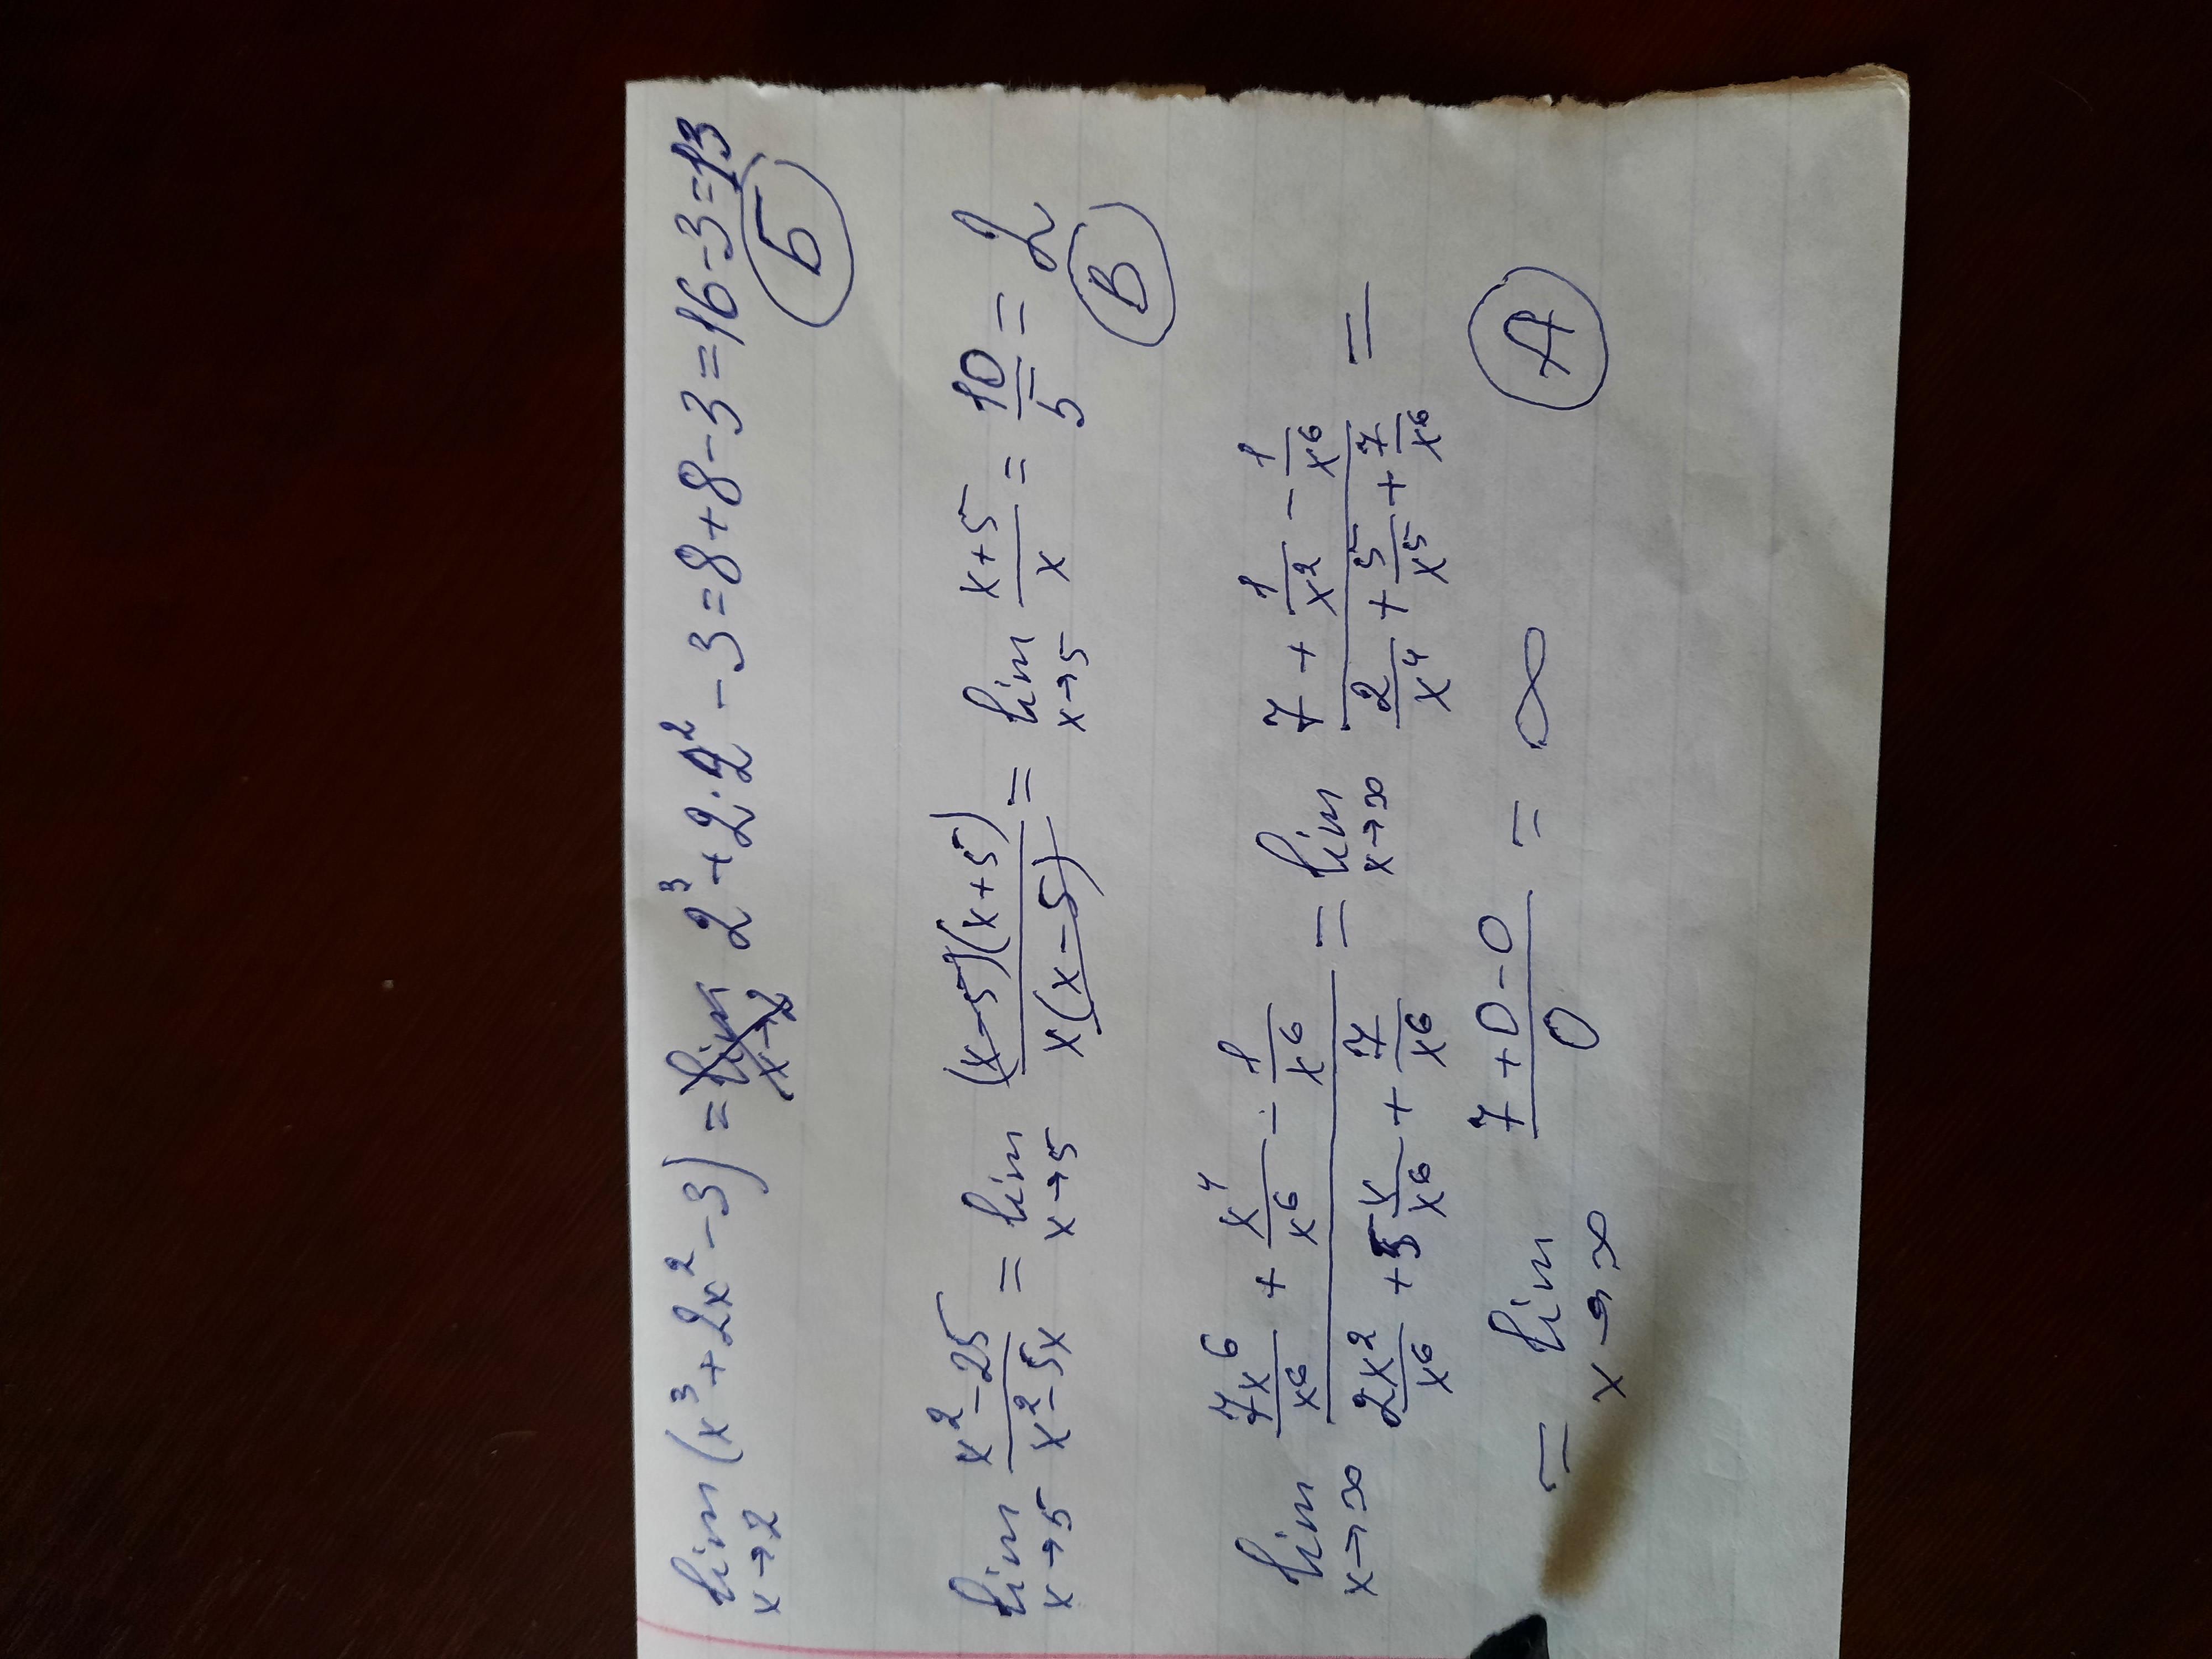 lim x→2 (x³+2x²-3) = 2³+2·2²-3=8+8-3=16-3=13
Б
lim x→5 (x²-25)/(x²-5x) = lim x→5 ((x-5)(x+5))/(x(x-5)) = lim x→5 (x+5)/x = 10/5 = 2
В
lim x→∞ (7x⁶/x⁶ + x⁴/x⁶ - 1/x⁶)/(2x²/x⁶ + 5x/x⁶ + 7/x⁶) = lim x→∞ (7 + 1/x² - 1/x⁶)/(2/x⁴ + 5/x⁵ + 7/x⁶) =
= lim x→∞ (7+0-0)/0 = ∞
А